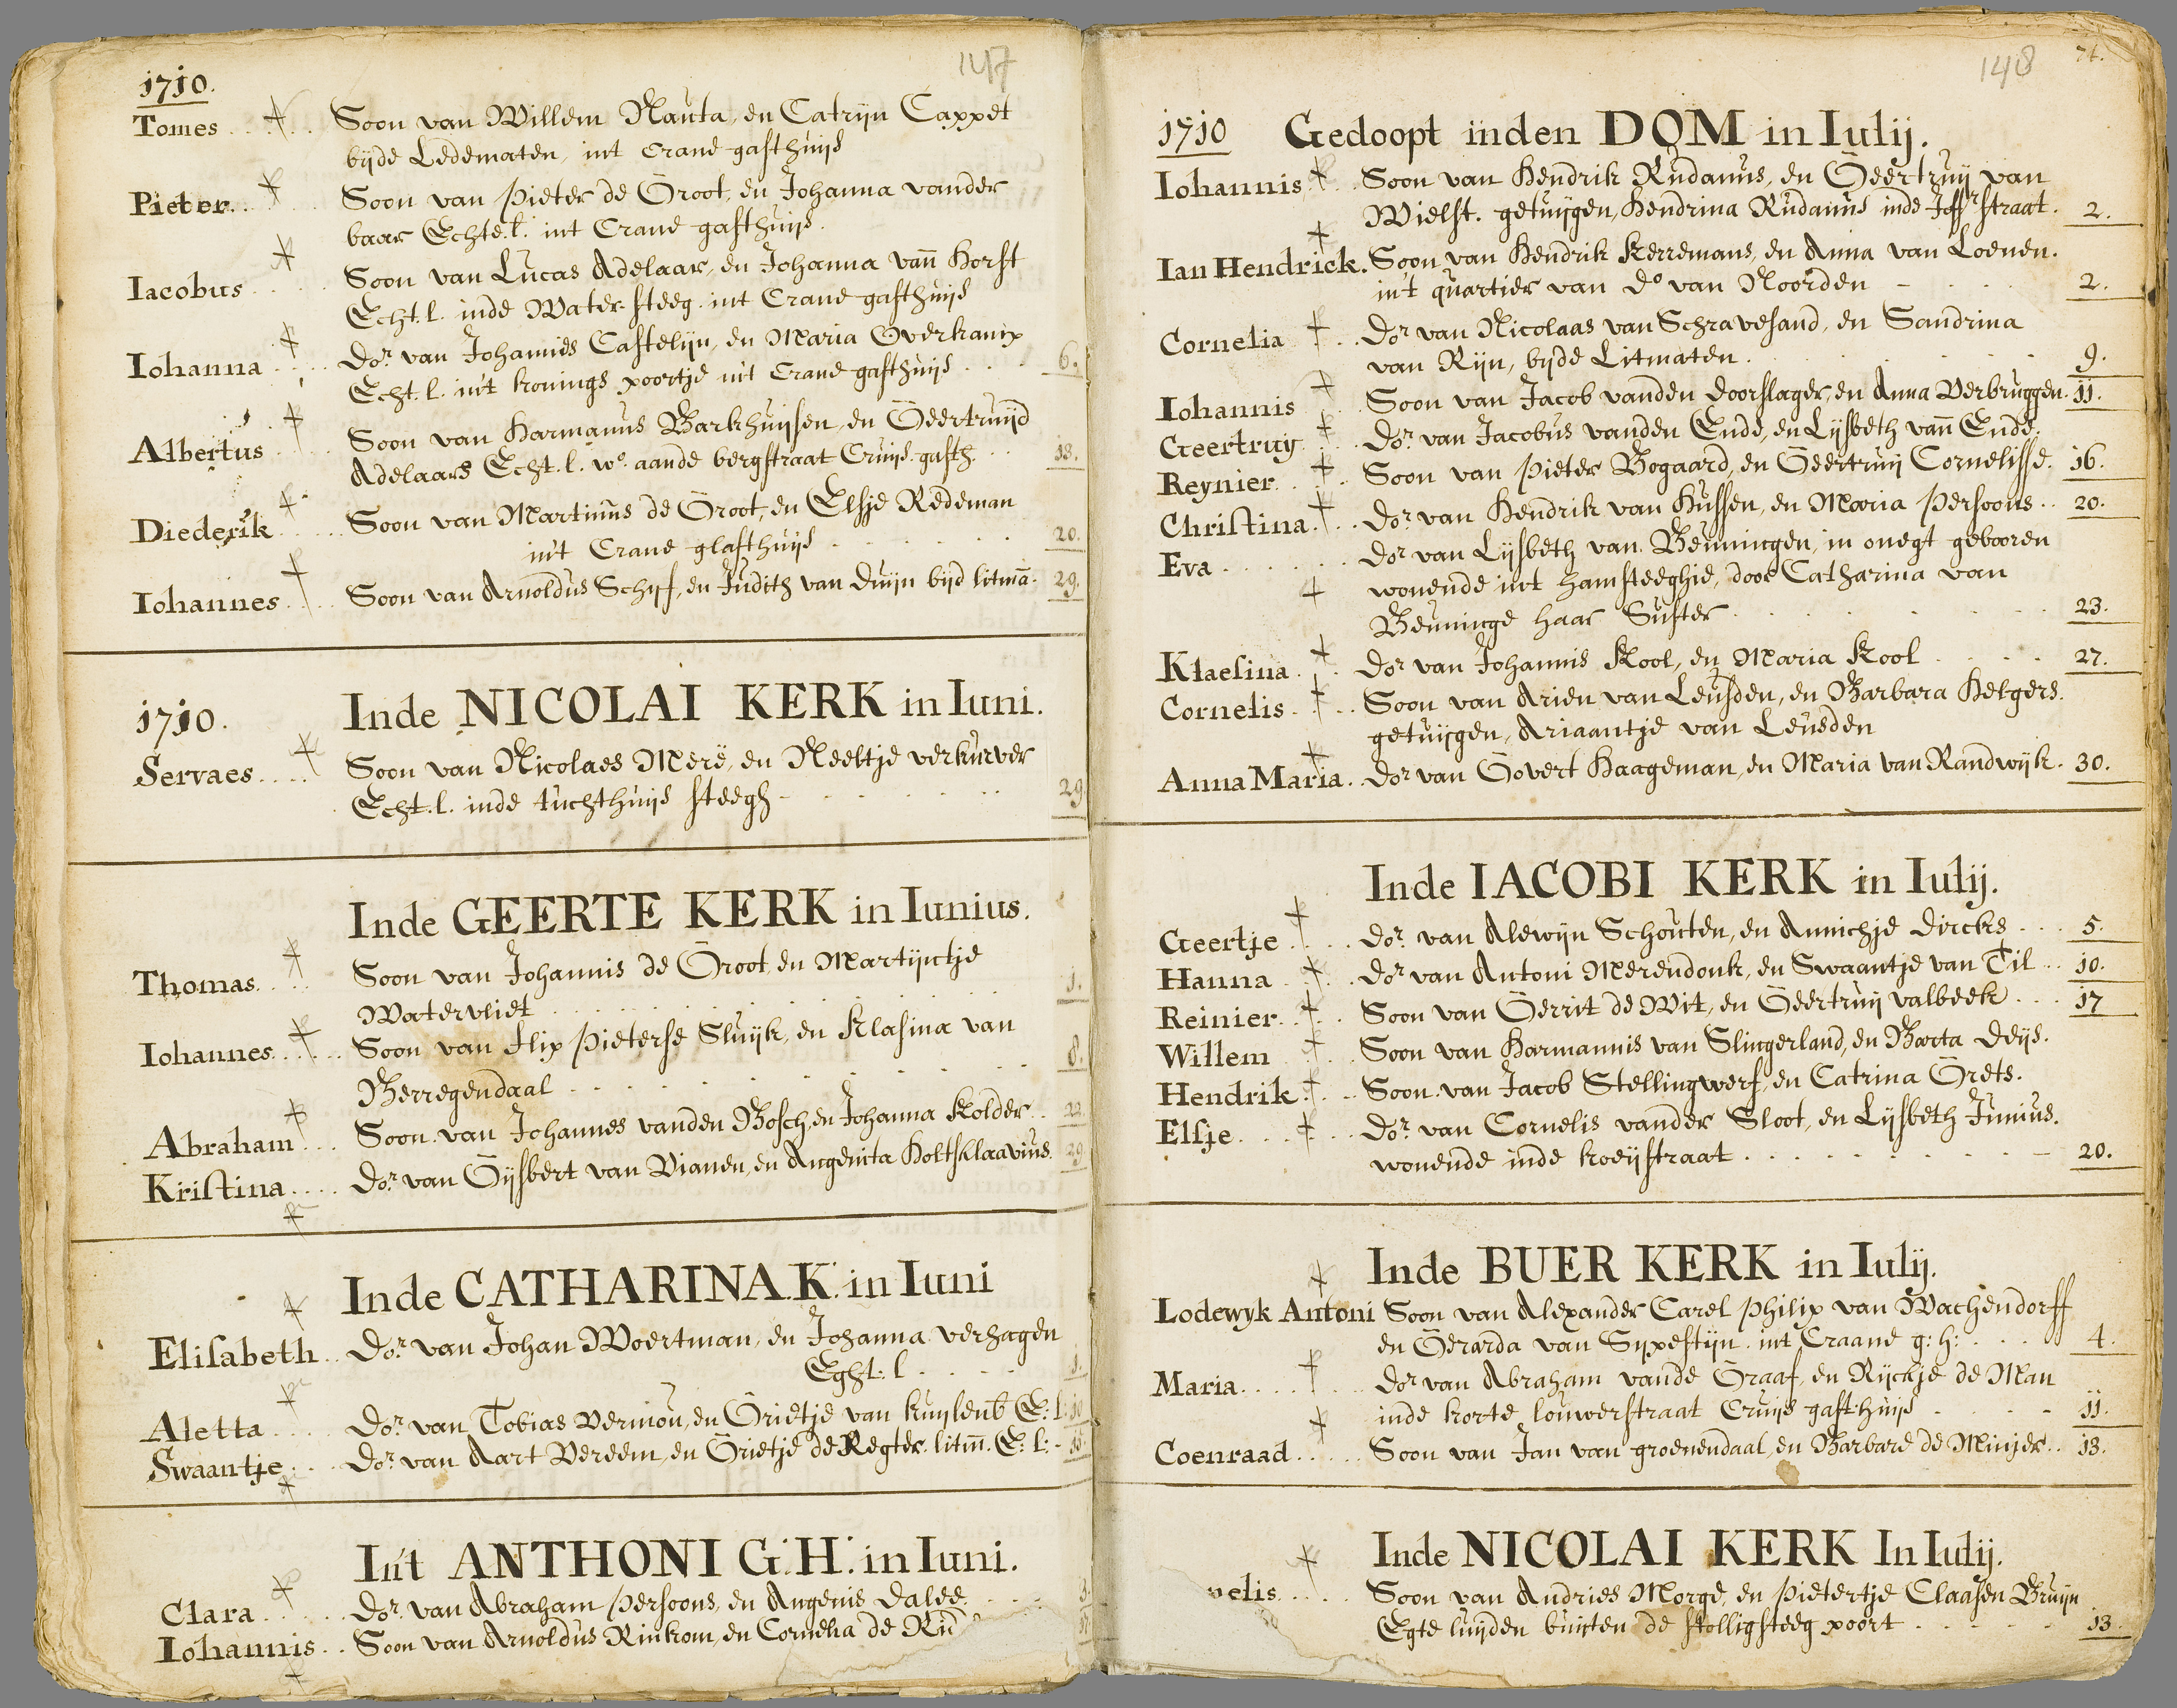 147
1710.
Tomes . . . . Soon van Willem Nauta, en Catryn Cappet
byde Ledematen, int Crane gasthuys
Pieter . . . Soon van Pieter de Groot, en Johanna vander
baar Echte. l. int Crane gasthuys.
Iacobus . . . Soon van Lucas Adelaar, en Johanna vañ Horst
Echt. l. inde Water steeg. int Crane gasthuys
Iohanna . . . Dor. van Johannes Castelyn, en Maria Overkamp
Echt. l. int konings poortje int Crane gasthuys . . . 6.
Albertus . . . Soon van Harmanus Barkhuysen, en Geertruyd
Adelaars Echt. l. wo. aande bergstraat Cruys. gasth. . . 13.
Diederik . . . Soon van Martinus de Groot, en Elsje Redeman
int Crane glasthuys . . . 20.
Iohannes . . . Soon van Arnoldus Schyf, en Judith van Duyn byd litmã. 29.
1710. Inde NICOLAI KERK in Iuni.
Servaes . . . . Soon van Nicolaes Merë, en Neeltje verkurver
Echt. l. inde tuchthuys steegh . . . 29
Inde GEERTE KERK in Iunius.
Thomas . . . Soon van Johannis de Groot, en Martijntje
Watervliet . . . 1.
Iohannes . . . Soon van flip Pieterse Sluyk, en Klasina van
Berregendaal . . . 8.
Abraham . . . Soon van Johannes vanden Bosch, en Johanna Kolder . . 22.
Kristina . . . . Dor. van Gysbert van Vianen, en Angenita Holtsklaavius. 29
Inde CATHARINA. K. in Iuni
Elisabeth . . Dor. van Johan Woertman, en Johanna verhagen
Eght. l . . . 1.
Aletta . . . Dor. van Tobias Vermou, en Grietje van kuylenb E: l: 10
Swaantje . . . Dor. van Aart Vereem, en Grietje de Regter. litm̃. E: l: - 15.
Int ANTHONI G: H: in Iuni.
Clara . . . . Dor. van Abraham Persoons, en Angenis Dalee. . .
Iohannis . . Soon van Arnoldus Rinkom, en Cornelia de Rid
148
74.
1710 Gedoopt inden DOM in Iulij.
Iohannis . . Soon van Hendrik Rudanus, en Geertruy van
Wielst. getuygen, Hendrina Rudanus inde Joffrstraat. 2.
Ian Hendrick. Soon van Hendrik Kerremans, en Anna van Loenen.
int quartier van Do van Noorden . . . 2.
Cornelia . . . Dor. van Nicolaas van Schravesand, en Sandrina
van Ryn, byde Litmaten . . . 9.
Iohannis . . Soon van Jacob vanden Doorslager, en Anna Verbruggen. 11.
Geertruy . . . Dor. van Jacobus vanden Ende, en Lysbeth vañ Ende.
Reynier . . . Soon van Pieter Bogaard, en Geertruy Cornelisse. 16.
Christina . . . Dor. van Hendrik van Hussen, en Maria Persoons . . 20.
Eva . . . . . . Dor van Lysbeth van Benningen, in onegt gebooren
wonende int hamsteeghie, door Catharina van
Benninge haar Suster . . . 23.
Klaesina . . . Dor van Johannis Kool, en Maria Kool . . . 27.
Cornelis . . . Soon van Arien van Leusden, en Barbara Helgers.
getuygen, Ariaantje van Leusden
Anna Maria . . Dor van Govert Haageman, en Maria van Randwyk . 30.
Inde IACOBI KERK in Iulij.
Geertje . . . . Dor. van Alewyn Schouten, en Annichje Dircks . . . 5.
Hanna . . . . Dor van Antoni Merendonk, en Swaantje van Til . . 10.
Reinier . . . Soon van Gerrit de Wit, en Geertruy valbeek . . . 17
Willem . . . Soon van Harmannis van Slingerland, en Barta Deys.
Hendrik . . . Soon. van Jacob Stellingwerf, en Catrina Grets.
Elsje . . . . Dor. van Cornelis vander Sloot, en Lysbeth Junius.
wonende inde koeystraat . . . 20.
Inde BUER KERK in Iulij.
Lodewyk Antoni Soon van Alexander Carel Philip van Wachendorff
en Gerarda van Sypestyn. int Craane g: h: . . . 4.
Maria . . . . Dor van Abraham vande Graaf, en Ryckje de Man
inde korte louwerstraat Cruys gasthuys . . . 11.
Coenraad . . . . Soon van Jan van groenendaal, en Barbare de Minjer . . 13.
Inde NICOLAI KERK In Iulij.
nelis . . . . Soon van Andries Morge, en Pietertje Claasen Bruyn
Egte luyden buyten de stolligsteeg poort . . . 13.